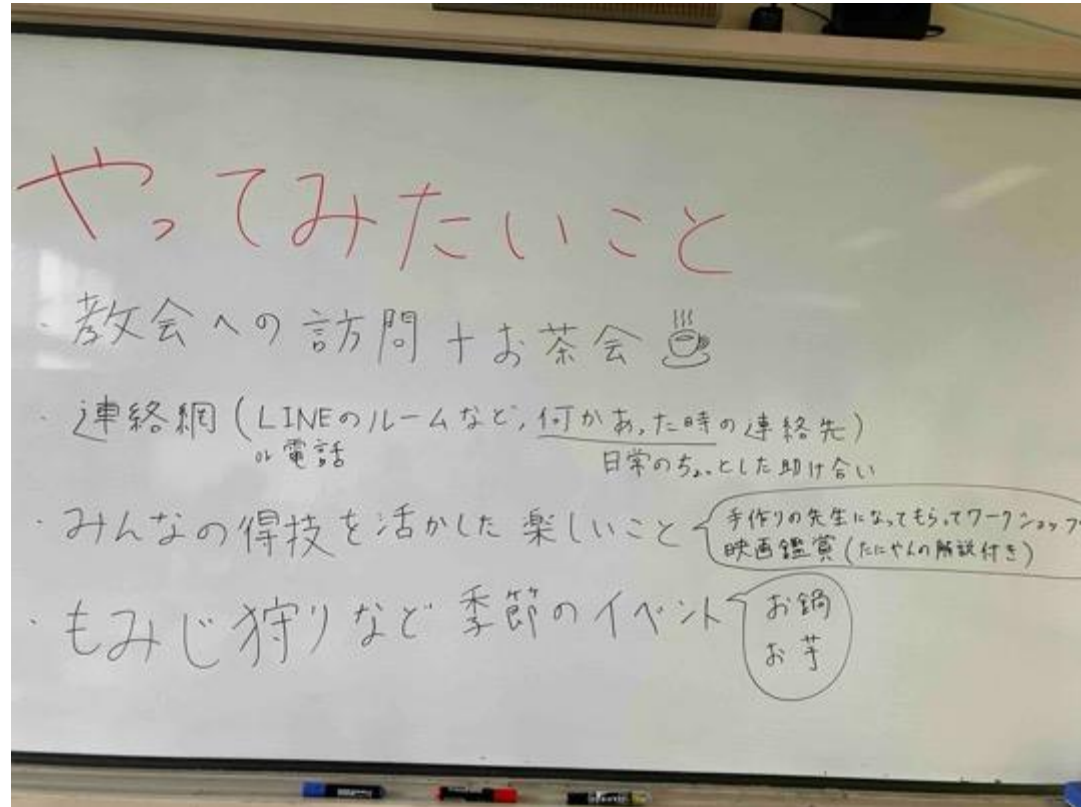 やってみたいこと
・教会への訪問+お茶会
・連絡網(LINEのルームなど,何かあった時の連絡先)
or電話 日常のちょっとした助け合い
・みんなの得技を活かした楽しいこと
手作りの先生になってもらってワークショップ
映画鑑賞(たにやんの解説付き)
・もみじ狩りなど季節のイベント
お鍋
お芋